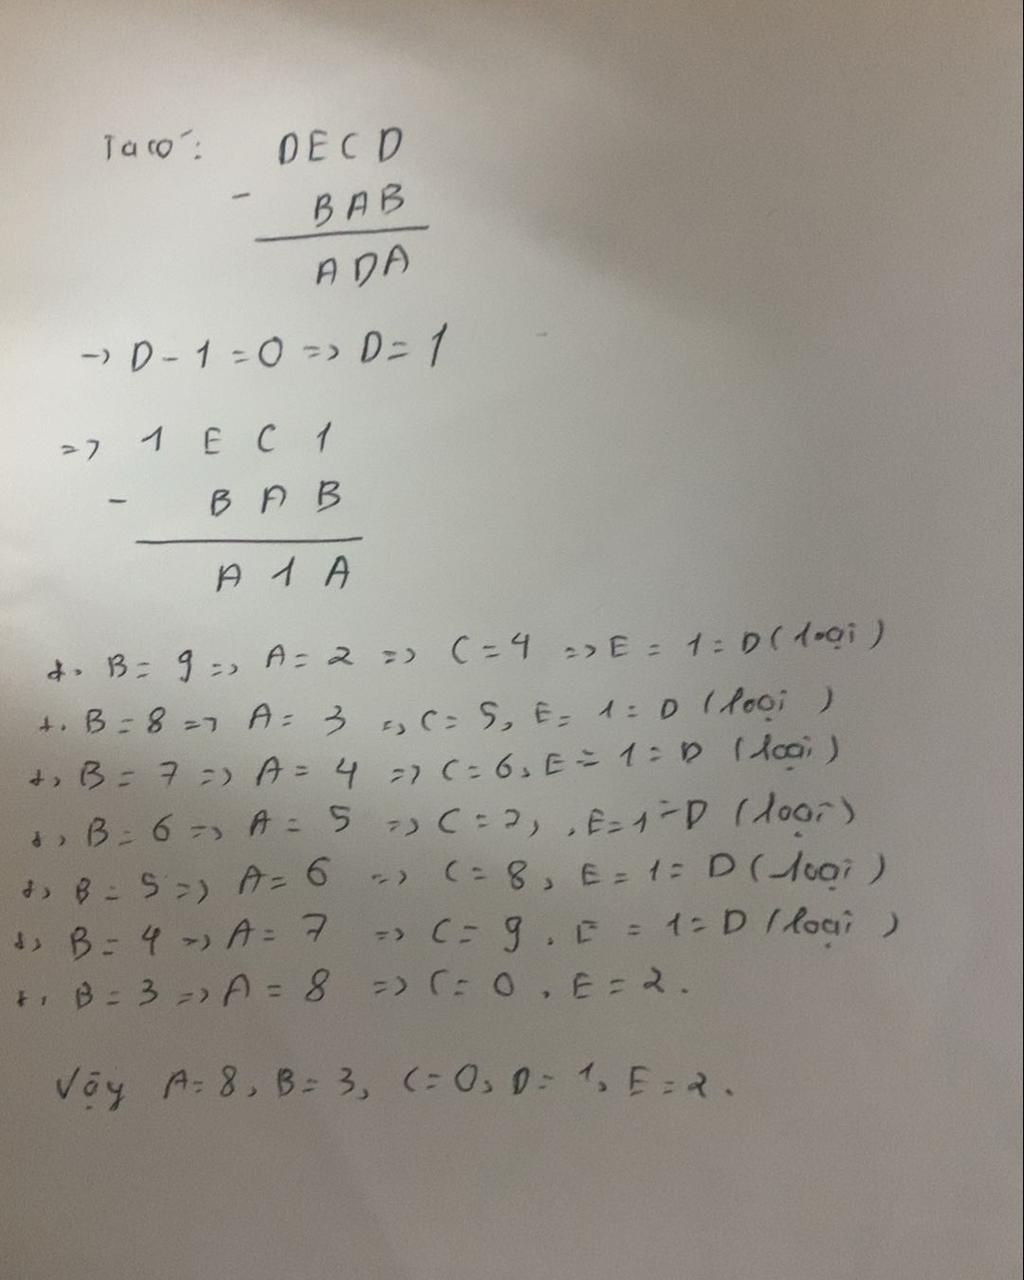 Ta có: DECD
- BAB
ADA
-> D - 1 = 0 => D = 1
=> 1 E C 1
- B A B
A 1 A
+, B = 9 => A = 2 => C = 4 => E = 1 = D (loại)
+, B = 8 => A = 3 => C = 5, E = 1 = D (loại)
+, B = 7 => A = 4 => C = 6, E = 1 = D (loại)
+, B = 6 => A = 5 => C = 7, , E = 1 = D (loại)
+, B = 5 => A = 6 => C = 8, E = 1 = D (loại)
+, B = 4 => A = 7 => C = 9, E = 1 = D (loại)
+, B = 3 => A = 8 => C = 0, E = 2.
Vậy A = 8, B = 3, C = 0, D = 1, E = 2.